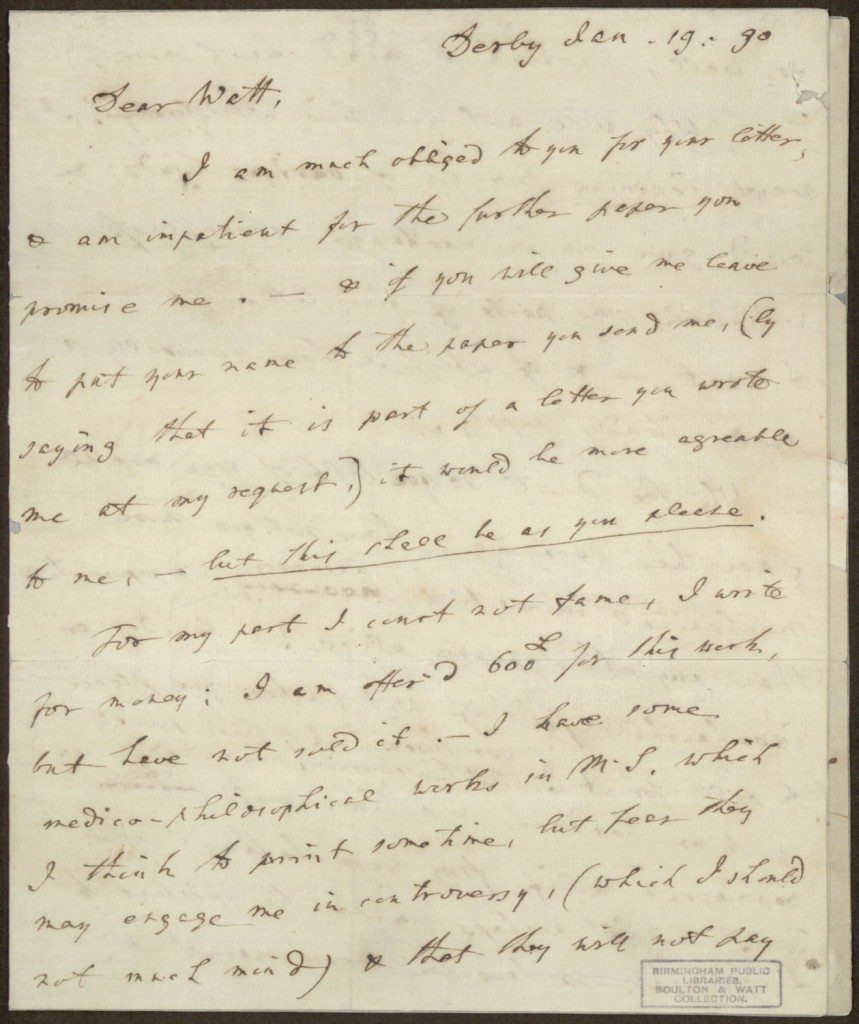 Derby Jan - 19. - 90
Dear Watt,
I am much obliged to you for your letter,
& am impatient for the further paper you
promise me. — & if you will give me leave
to put your name to the paper you send me, (by
saying that it is part of a letter you wrote
me at my request,) it would be more agreable
to me, — but this shall be as you please.
For my part I court not fame, I write
for money; I am offer'd 600£ for this work,
but have not sold it. — I have some
medico-philosophical works in M.S. which
I think to print sometime, but fear they
may engage me in controversy, (which I should
not much mind) & that they will not pay
BIRMINGHAM PUBLIC
LIBRARIES.
BOULTON & WATT
COLLECTION.